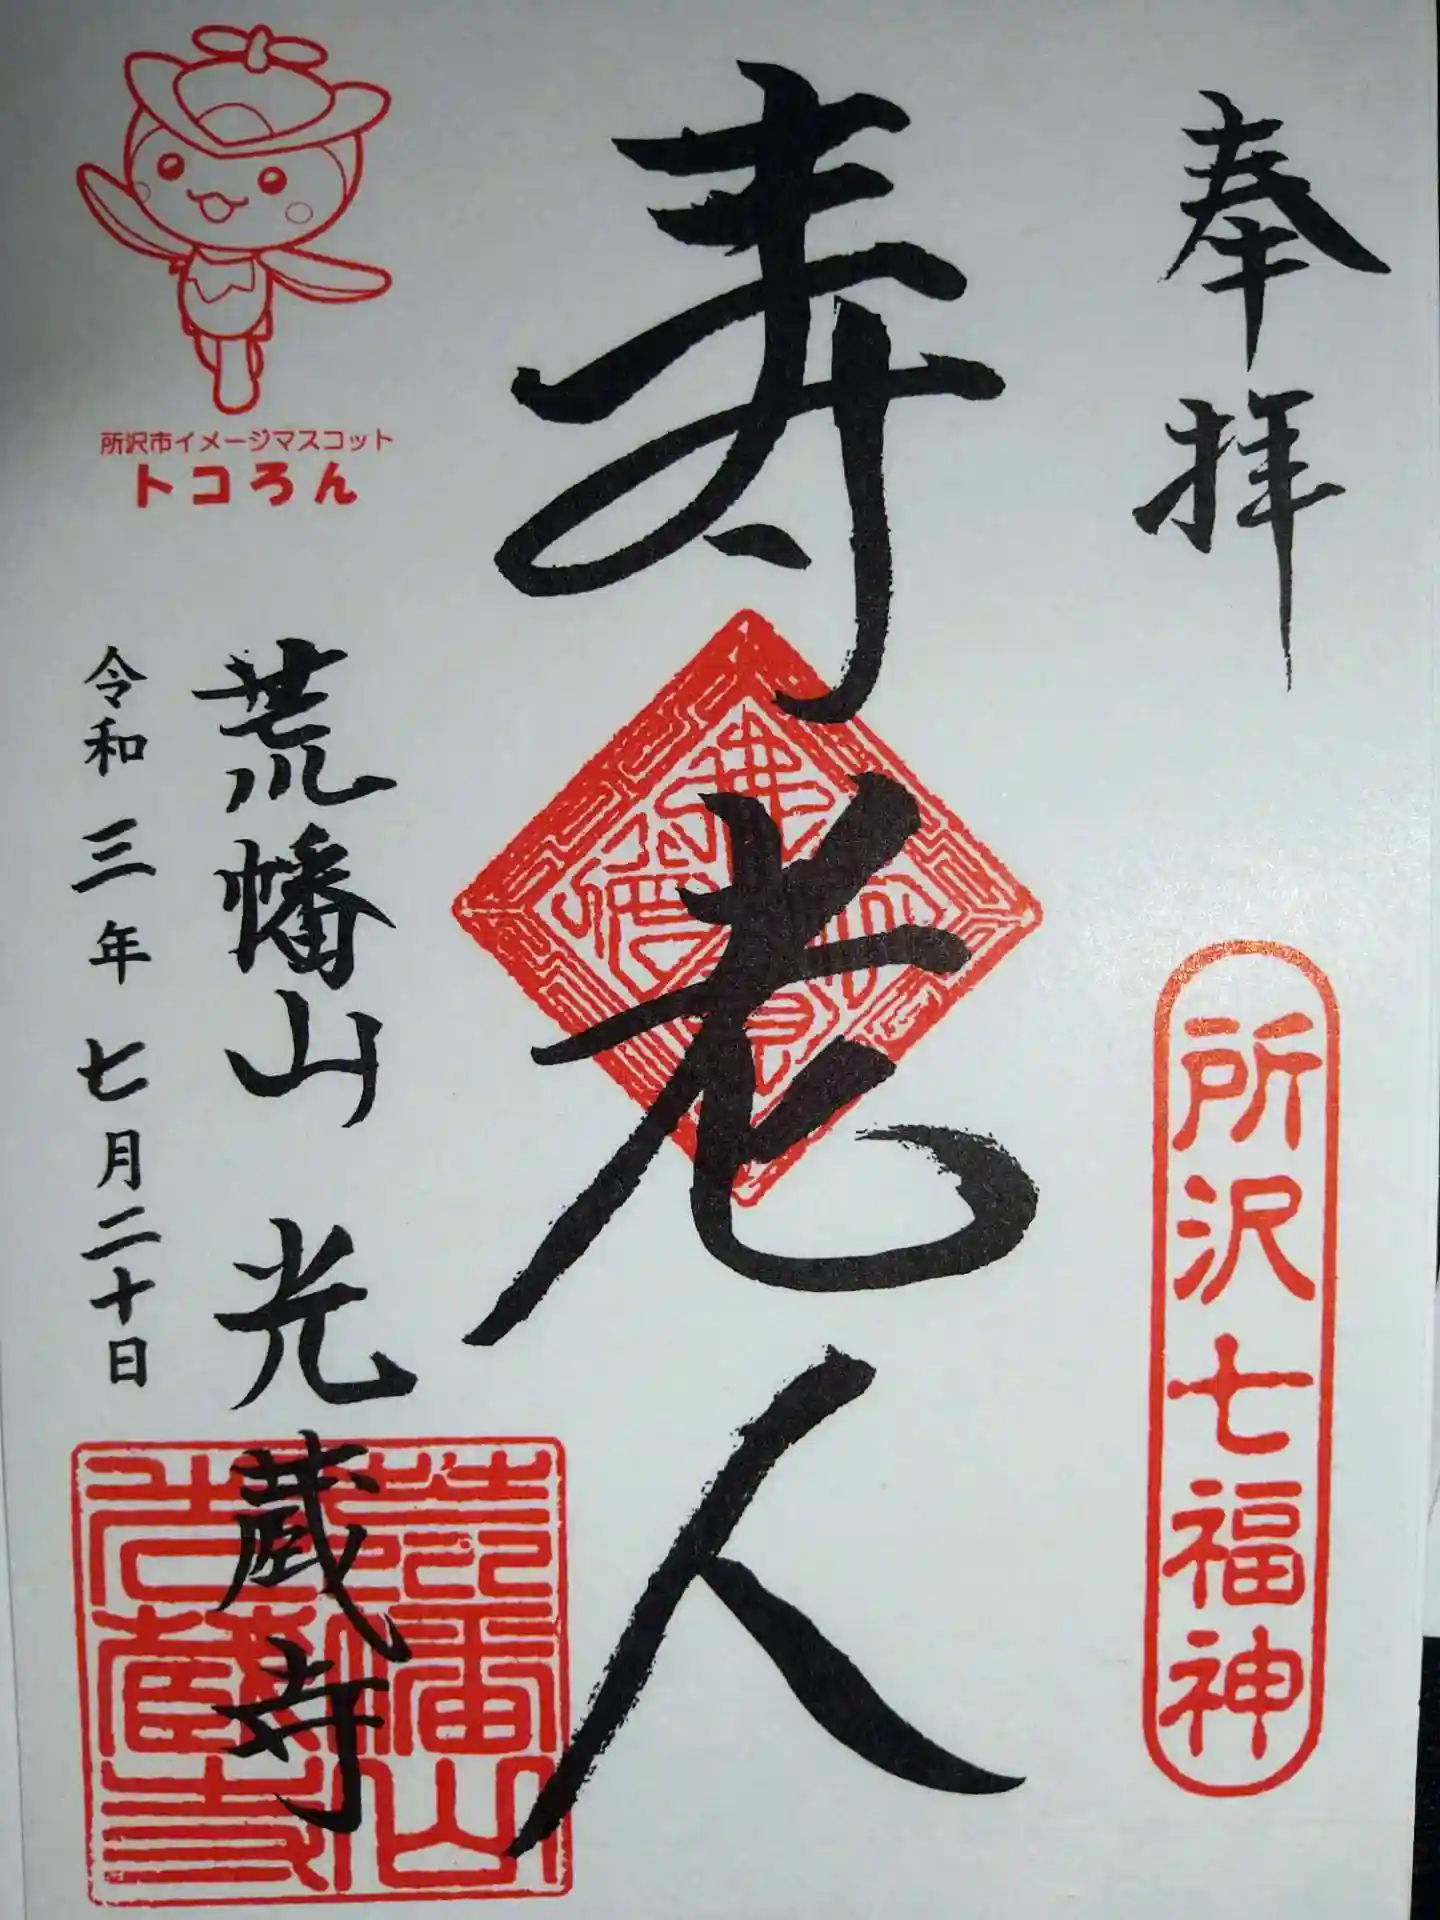 奉拝
所沢七福神
寿老人
所沢市イメージマスコット
トコろん
荒幡山 光蔵寺
令和三年 七月二十日
荒幡山
光蔵寺